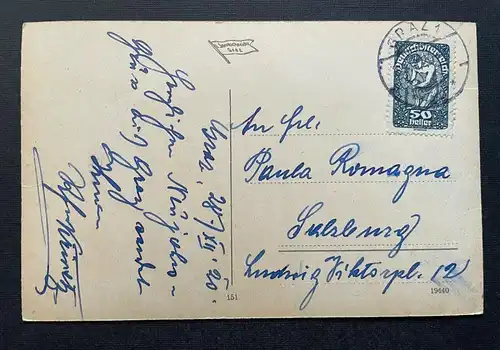 GRAZ 1
Deutschösterreich
50
Heller
Graz, 28/XII. 20.
Herzlichen Neujahrs-
gruss aus Graz
Ihnen
An Frl.
Paula Romagna
Salzburg
Ludwig Viktorpl. 12
151
19440